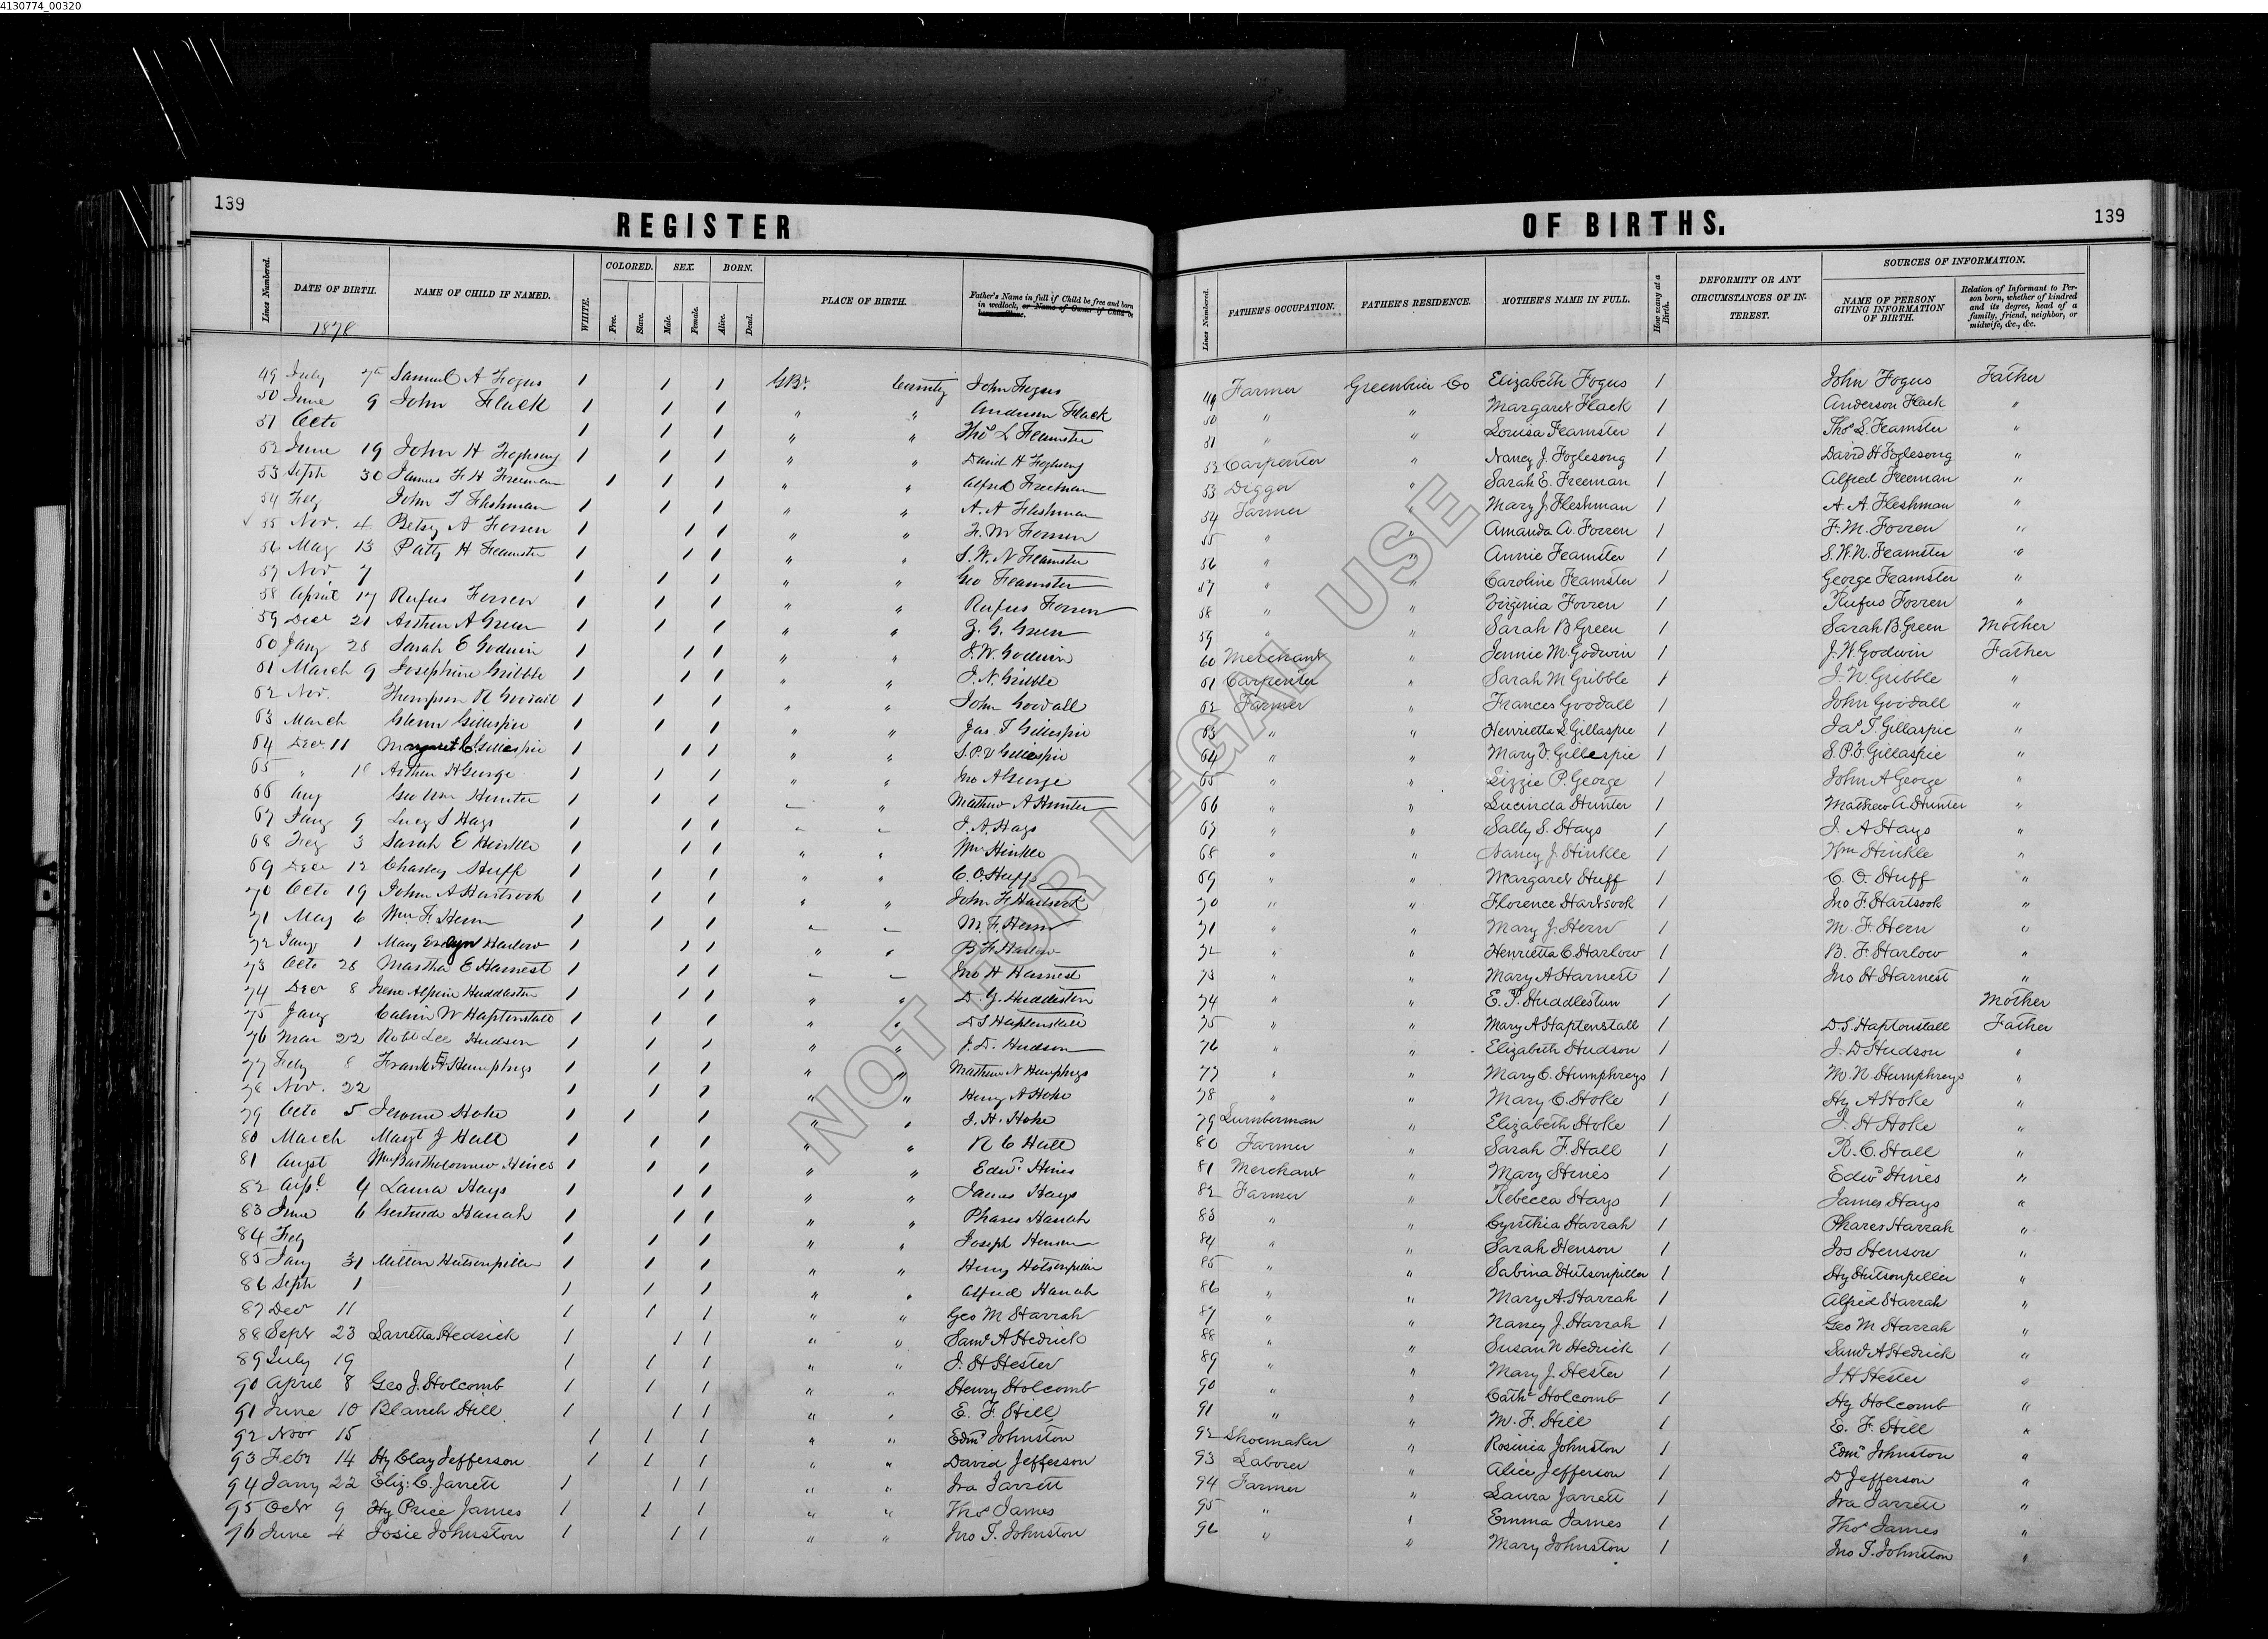 4130774_00320
139
REGISTER
Lines Numbered. DATE OF BIRTH. NAME OF CHILD IF NAMED. WHITE. COLORED. Free. Slave. SEX. Male. Female. BORN. Alive. Dead. PLACE OF BIRTH. Father's Name in full if Child be free and born in wedlock, or Name of Owner if Child be
1878
49 July 7th Samuel A Fogus 1 1 1 GBr County John Fogus
50 June 9 John Flack 1 1 1 " " Anderson Flack
51 Octo 1 1 1 " " Thos L Feamster
52 June 19 John H Foglesong 1 1 1 " " David H Foglesong
53 Sept 30 James F H Freeman 1 1 1 " " Alfred Freeman
54 Feby John T Fleshman 1 1 1 " " A. A Fleshman
55 Nov. 4 Betsy A Forren 1 1 1 " " F. M Forren
56 May 13 Patty H Feamster 1 1 1 " " S. W. N Feamster
57 Nov. 7 1 1 1 " " Geo Feamster
58 April 17 Rufus Forren 1 1 1 " " Rufus Forren
59 Decr 21 Arthur A Green 1 1 1 " " Z. G. Green
60 Jany 28 Sarah E Godwin 1 1 1 " " J. W. Godwin
61 March 9 Josephine Gribble 1 1 1 " " J. N. Gribble
62 Nov. Thompson R Goodall 1 1 1 " " John Goodall
63 March Glenn Gillespie 1 1 1 " " Jas. T Gillespie
64 Decr. 11 Margaret C. Gillespie 1 1 1 " " S. P. V Gillespie
65 " 18 Arthur H George 1 1 1 " " Jno A George
66 Aug Geo Wm Hunter 1 1 1 " " Mathew A Hunter
67 Jany 9 Lucy S Hays 1 1 1 " " J. A. Hays
68 Feby 3 Sarah E Hinkle 1 1 1 " " Wm Hinkle
69 Decr 12 Charley Huff 1 1 1 " " C. O. Huff
70 Octo 19 John A Hartsook 1 1 1 " " John F Hartsook
71 May 6 Wm F. Hern 1 1 1 " " M. F. Hern
72 Jany 1 Mary Evalyn Harlow 1 1 1 " " B. F. Harlow
73 Octo 28 Martha E Harnest 1 1 1 " " Jno H Harnest
74 Decr 8 Irene Alpine Huddleston 1 1 1 " " D. G. Huddleston
75 Jany Calvin W Haptonstall 1 1 1 " " D S Haptonstall
76 Mar 22 Robt Lee Hudson 1 1 1 " " J. D. Hudson
77 Feby 8 Frank H Humphreys 1 1 1 " " Mathew N Humphreys
78 Nov. 22 1 1 1 " " Henry A Hoke
79 Octo 5 Jerome Hoke 1 1 1 " " J. H. Hoke
80 March Margt J Hall 1 1 1 " " R C Hall
81 Augst Wm Bartholomew Hines 1 1 1 " " Edwd. Hines
82 Aprl. 4 Laura Hays 1 1 1 " " James Hays
83 June 6 Gertrude Hanah 1 1 1 " " Phares Hanah
84 Feby 1 1 1 " " Joseph Henson
85 Jany 31 Milton Hutsonpiller 1 1 1 " " Henry Hutsonpiller
86 Sept 1 1 1 1 " " Alfred Hanah
87 Decr 11 1 1 1 " " Geo M Harrah
88 Septr 23 Larretta Hedrick 1 1 1 " " Saml A Hedrick
89 July 19 1 1 1 " " J. H Hester
90 April 8 Geo J. Holcomb 1 1 1 " " Henry Holcomb
91 June 10 Blanch Hill 1 1 1 " " E. F. Hill
92 Novr 15 1 1 1 " " Edmd Johnston
93 Febr 14 Hy Clay Jefferson 1 1 1 " " David Jefferson
94 Janry 22 Eliz: C. Jarrett 1 1 1 " " Ira Jarrett
95 Octr 9 Hy Price James 1 1 1 " " Thos James
96 June 4 Josie Johnston 1 1 1 " " Jno T. Johnston
OF BIRTHS.
139
Lines Numbered. FATHER'S OCCUPATION. FATHER'S RESIDENCE. MOTHER'S NAME IN FULL. How many at a Birth. DEFORMITY OR ANY CIRCUMSTANCES OF INTEREST. SOURCES OF INFORMATION. NAME OF PERSON GIVING INFORMATION OF BIRTH. Relation of Informant to Person born, whether of kindred and its degree, head of a family, friend, neighbor, or midwife, &c., &c.
49 Farmer Greenbrier Co Elizabeth Fogus 1 John Fogus Father
50 " " Margaret Flack 1 Anderson Flack "
51 " " Louisa Feamster 1 Thos L. Feamster "
52 Carpenter " Nancy J. Foglesong 1 David H Foglesong "
53 Digger " Sarah E. Freeman 1 Alfred Freeman "
54 Farmer " Mary J. Fleshman 1 A. A. Fleshman "
55 " " Amanda A. Forren 1 F. M. Forren "
56 " " Annie Feamster 1 S. W. N. Feamster "
57 " " Caroline Feamster 1 George Feamster "
58 " " Virginia Forren 1 Rufus Forren "
59 " " Sarah B Green 1 Sarah B Green Mother
60 Merchant " Jennie M. Godwin 1 J. W. Godwin Father
61 Carpenter " Sarah M Gribble 1 J. N. Gribble "
62 Farmer " Frances Goodall 1 John Goodall "
63 " " Henrietta L Gillaspie 1 Jas T. Gillaspie "
64 " " Mary V. Gillespie 1 S. P. V. Gillaspie "
65 " " Lizzie P. George 1 John A George "
66 " " Lucinda Hunter 1 Mathew A. Hunter "
67 " " Sally S. Hays 1 J. A Hays "
68 " " Nancy J. Hinkle 1 Wm Hinkle "
69 " " Margaret Huff 1 C. O. Huff "
70 " " Florence Hartsook 1 Jno F. Hartsook "
71 " " Mary J. Hern 1 M. F. Hern "
72 " " Henrietta C. Harlow 1 B. F. Harlow "
73 " " Mary A Harnest 1 Jno H Harnest "
74 " " E. P. Huddlestun 1 Mother
75 " " Mary A Haptenstall 1 D. S. Haptonstall Father
76 " " Elizabeth Hudson 1 J. D Hudson "
77 " " Mary C. Humphreys 1 M. N. Humphreys "
78 " " Mary C. Hoke 1 Hy A Hoke "
79 Lumberman " Elizabeth Hoke 1 J. H Hoke "
80 Farmer " Sarah F. Hall 1 R. C. Hall "
81 Merchant " Mary Hines 1 Edwd Hines "
82 Farmer " Rebecca Hays 1 James Hays "
83 " " Cynthia Harrah 1 Phares Harrah "
84 " " Sarah Henson 1 Jos Henson "
85 " " Sabina Hutsonpiller 1 Hy Hutsonpiller "
86 " " Mary A. Harrah 1 Alfred Harrah "
87 " " Nancy J. Harrah 1 Geo M Harrah "
88 " " Susan N Hedrick 1 Saml A Hedrick "
89 " " Mary J. Hester 1 J H Hester "
90 " " Cathe Holcomb 1 Hy Holcomb "
91 " " M. F. Hill 1 E. F. Hill "
92 Shoemaker " Rosinia Johnston 1 Edmd Johnston "
93 Laborer " Alice Jefferson 1 D Jefferson "
94 Farmer " Laura Jarrett 1 Ira Jarrett "
95 " " Emma James 1 Thos James "
96 " " Mary Johnston 1 Jno T. Johnston "
NOT FOR LEGAL USE